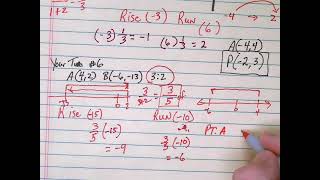 1+2
Rise (-3) Run (6) -4 → 2
(-3) 1/3 = -1 (6) 1/3 = 2
A(-4,4)
P(-2,3)
Your Turn #6
A(4,2) B(-6,-13) 3:2
3/3+2 = 3/5
Rise (-15) Run (-10) PT: A
3/5 (-15) 3/5 (-10)
= -9 = -6